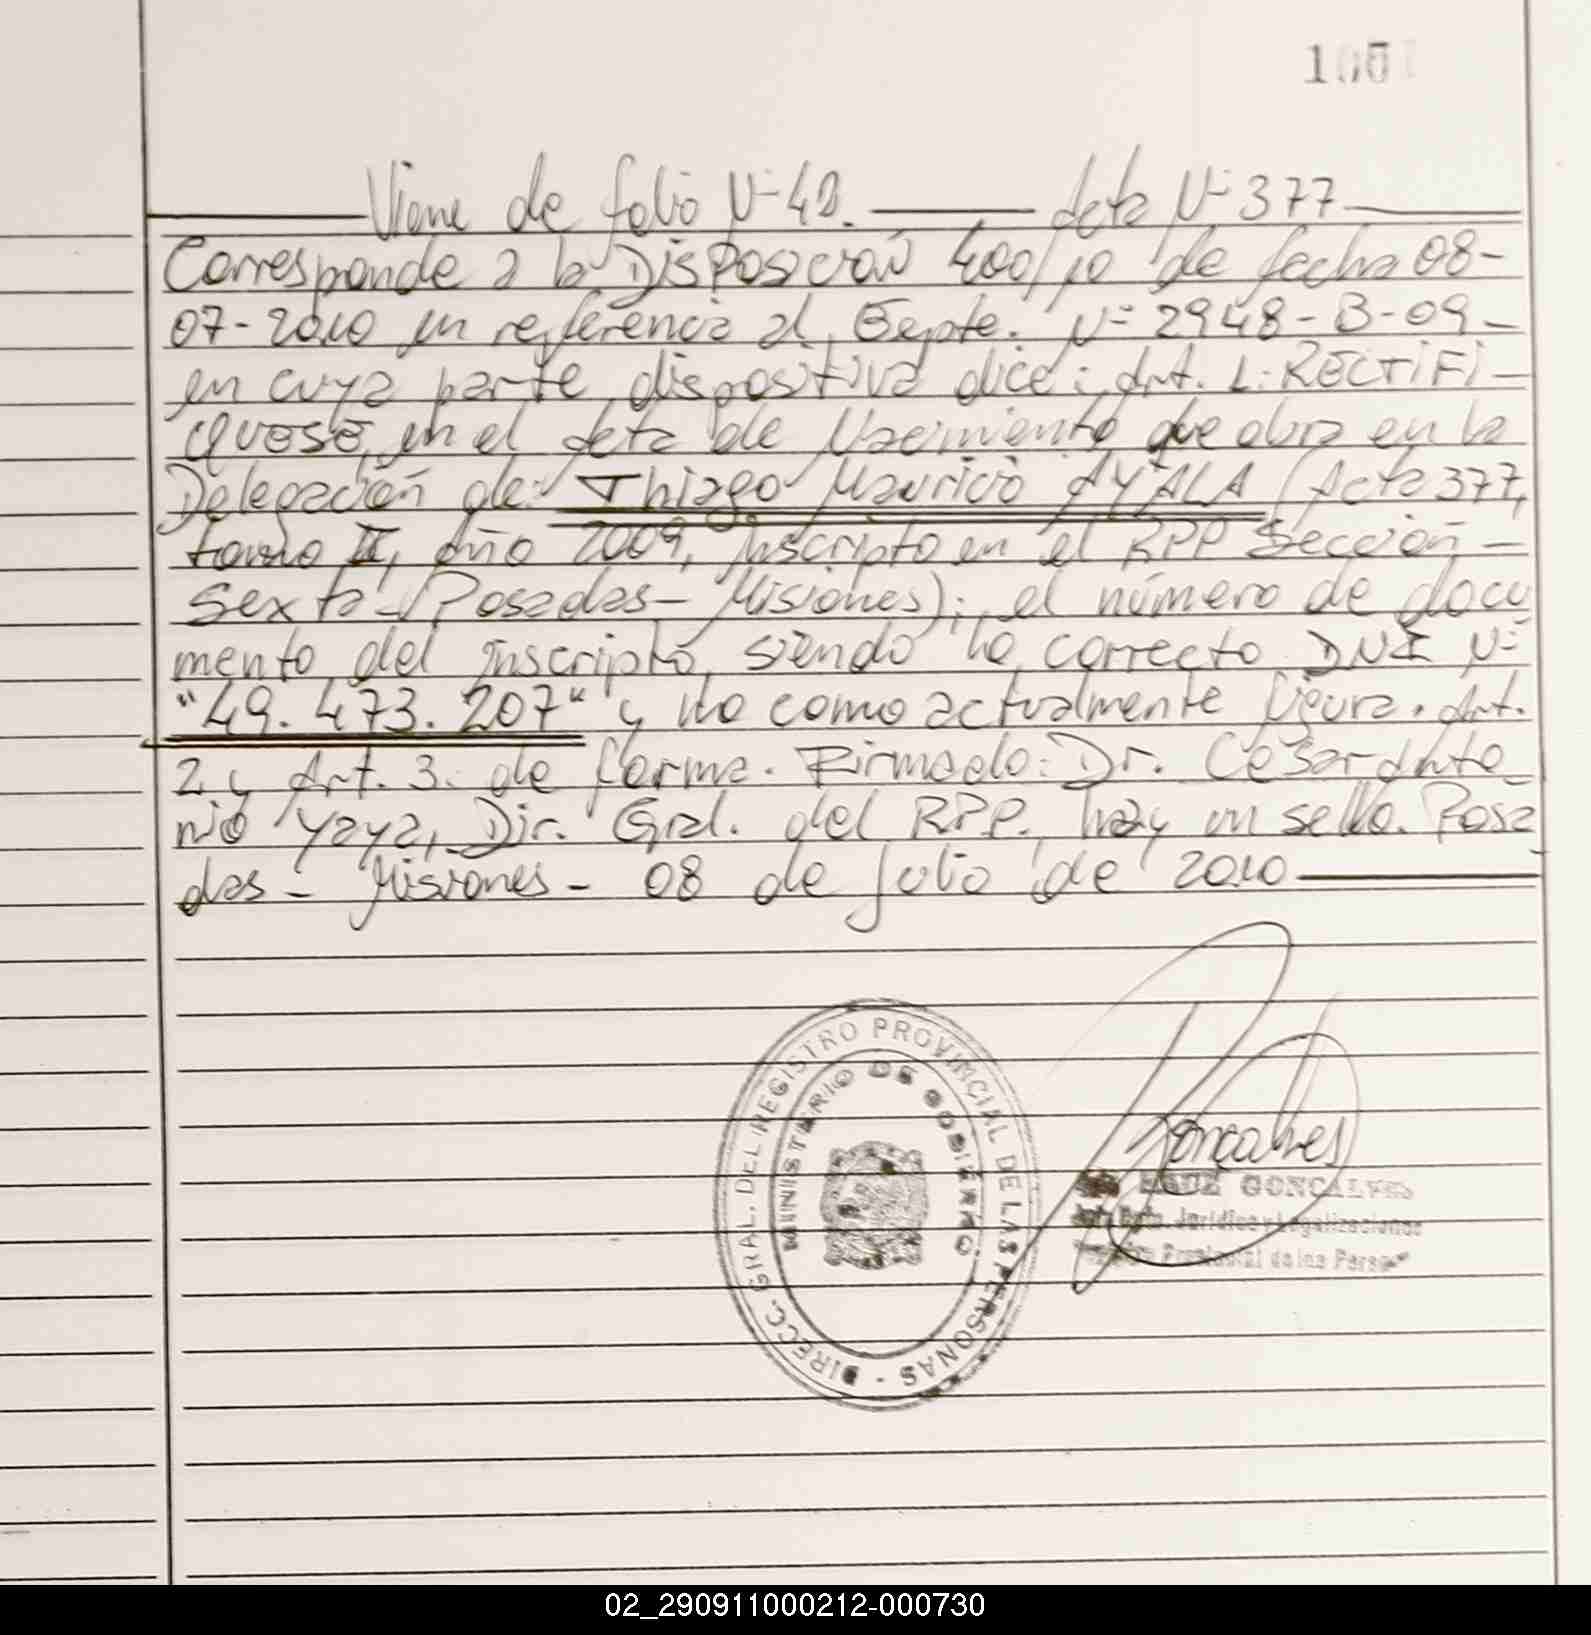 Viene de folio Nº 42. Acta Nº 377
Corresponde a la Disposición 400/10 de fecha 08-
07-2010 en referencia al Expte. Nº 2948-B-09-
en cuya parte dispositiva dice: Art. 1: RECTIFI-
QUESE, en el Acta de Nacimiento que obra en la
Delegación de: Thiago Mauricio AYALA (Acta 377,
tomo II, Año 2009, inscripto en el RPP Sección-
Sexta-(Posadas-Misiones); el número de docu
mento del inscripto, siendo lo correcto DNI Nº
"49.473.207" y no como actualmente figura. Art.
2 y Art. 3: de forma. Firmado: Dr. Cesar Anto
nio Yaya, Dir. Gral. del RPP. hay un sello. Posa
das - Misiones - 08 de Julio de 2010
DIRECC. GRAL. DEL REGISTRO PROVINCIAL DE LAS PERSONAS -
MINISTERIO DE GOBIERNO
Gonçalves
GONCALVES
Jurídico y Legalizaciones
Provincial de las Person
02_290911000212-000730